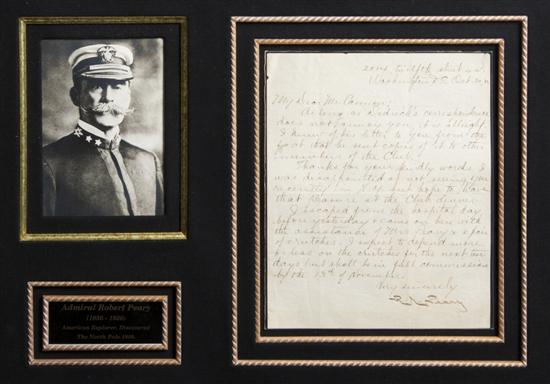 Admiral Robert Peary
(1856 - 1920)
American Explorer, Discovered
The North Pole 1909.
2014 Twelfth Street
Washington D.C. Oct.
My Dear Mr.
As long as Dedrick's correspondence
does not annoy you, it is all right.
I knew of his letter to you from the
fact that he sent copies of it to other
members of the Club.
Thanks for your kindly words. I
was disappointed at not seeing you
recently in N.Y. but hope to have
that pleasure at the Club dinner.
I escaped from the hospital day
before yesterday & am on here with
the assistance of Mrs Peary & a pair
of crutches. I expect to depend more
or less on the crutches for the next ten
days but shall be in full commission
by the 13th of November.
Very sincerely
R. E. Peary